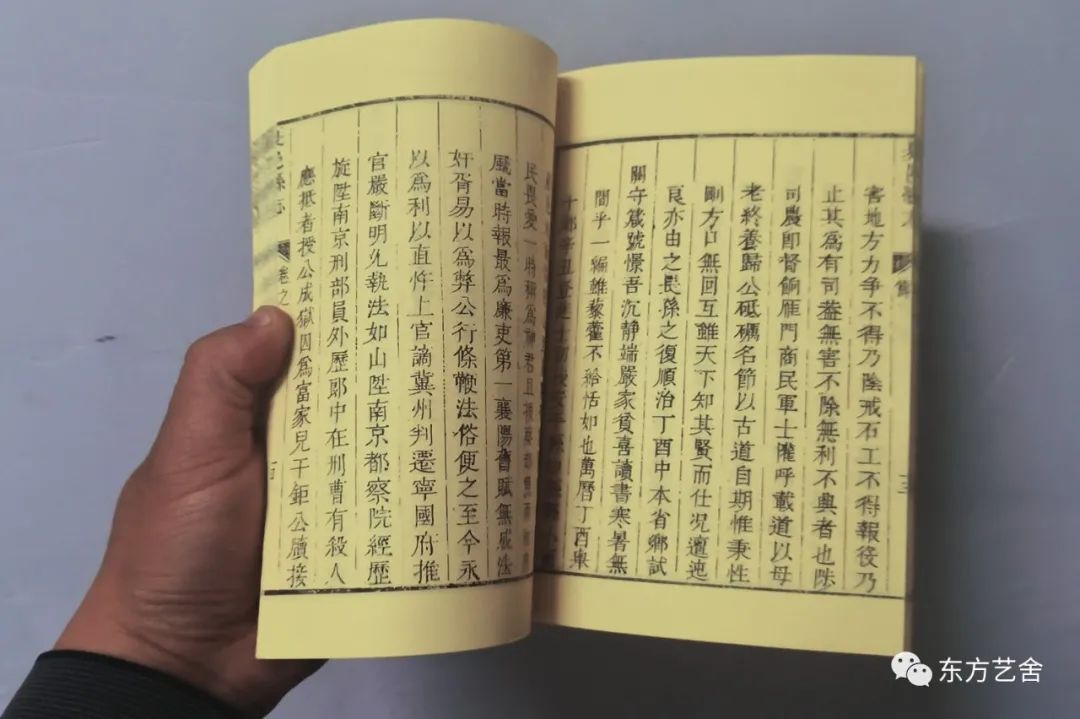 害地方力争不得乃陰戒石工不得報役乃
止其為有司葢無害不除無利不興者也陟
司農即督餉雁門商民軍士懽呼載道以母
老終養歸公砥礪名節以古道自期惟秉性
剛方口無回互雖天下知其賢而仕況邅迍
良亦由之長孫之復順治丁酉中本省鄉試
關守箴號憬吾沉静端嚴家貧喜讀書寒暑無
間乎一編雖藜藿不給恬如也萬曆丁酉舉
民畏愛一時稱為神君且
風當時報最為廉吏第一襄陽舊賦無成法
奸胥易以為弊公行條鞭法俗便之至今永
以為利以直忤上官謫冀州判遷寧國府推
官嚴斷明允執法如山陞南京都察院經歷
旋陞南京刑部員外歷郎中在刑曹有殺人
應抵者授公成獄囚為富家兒干鉅公牘接
卷之
東方艺舍